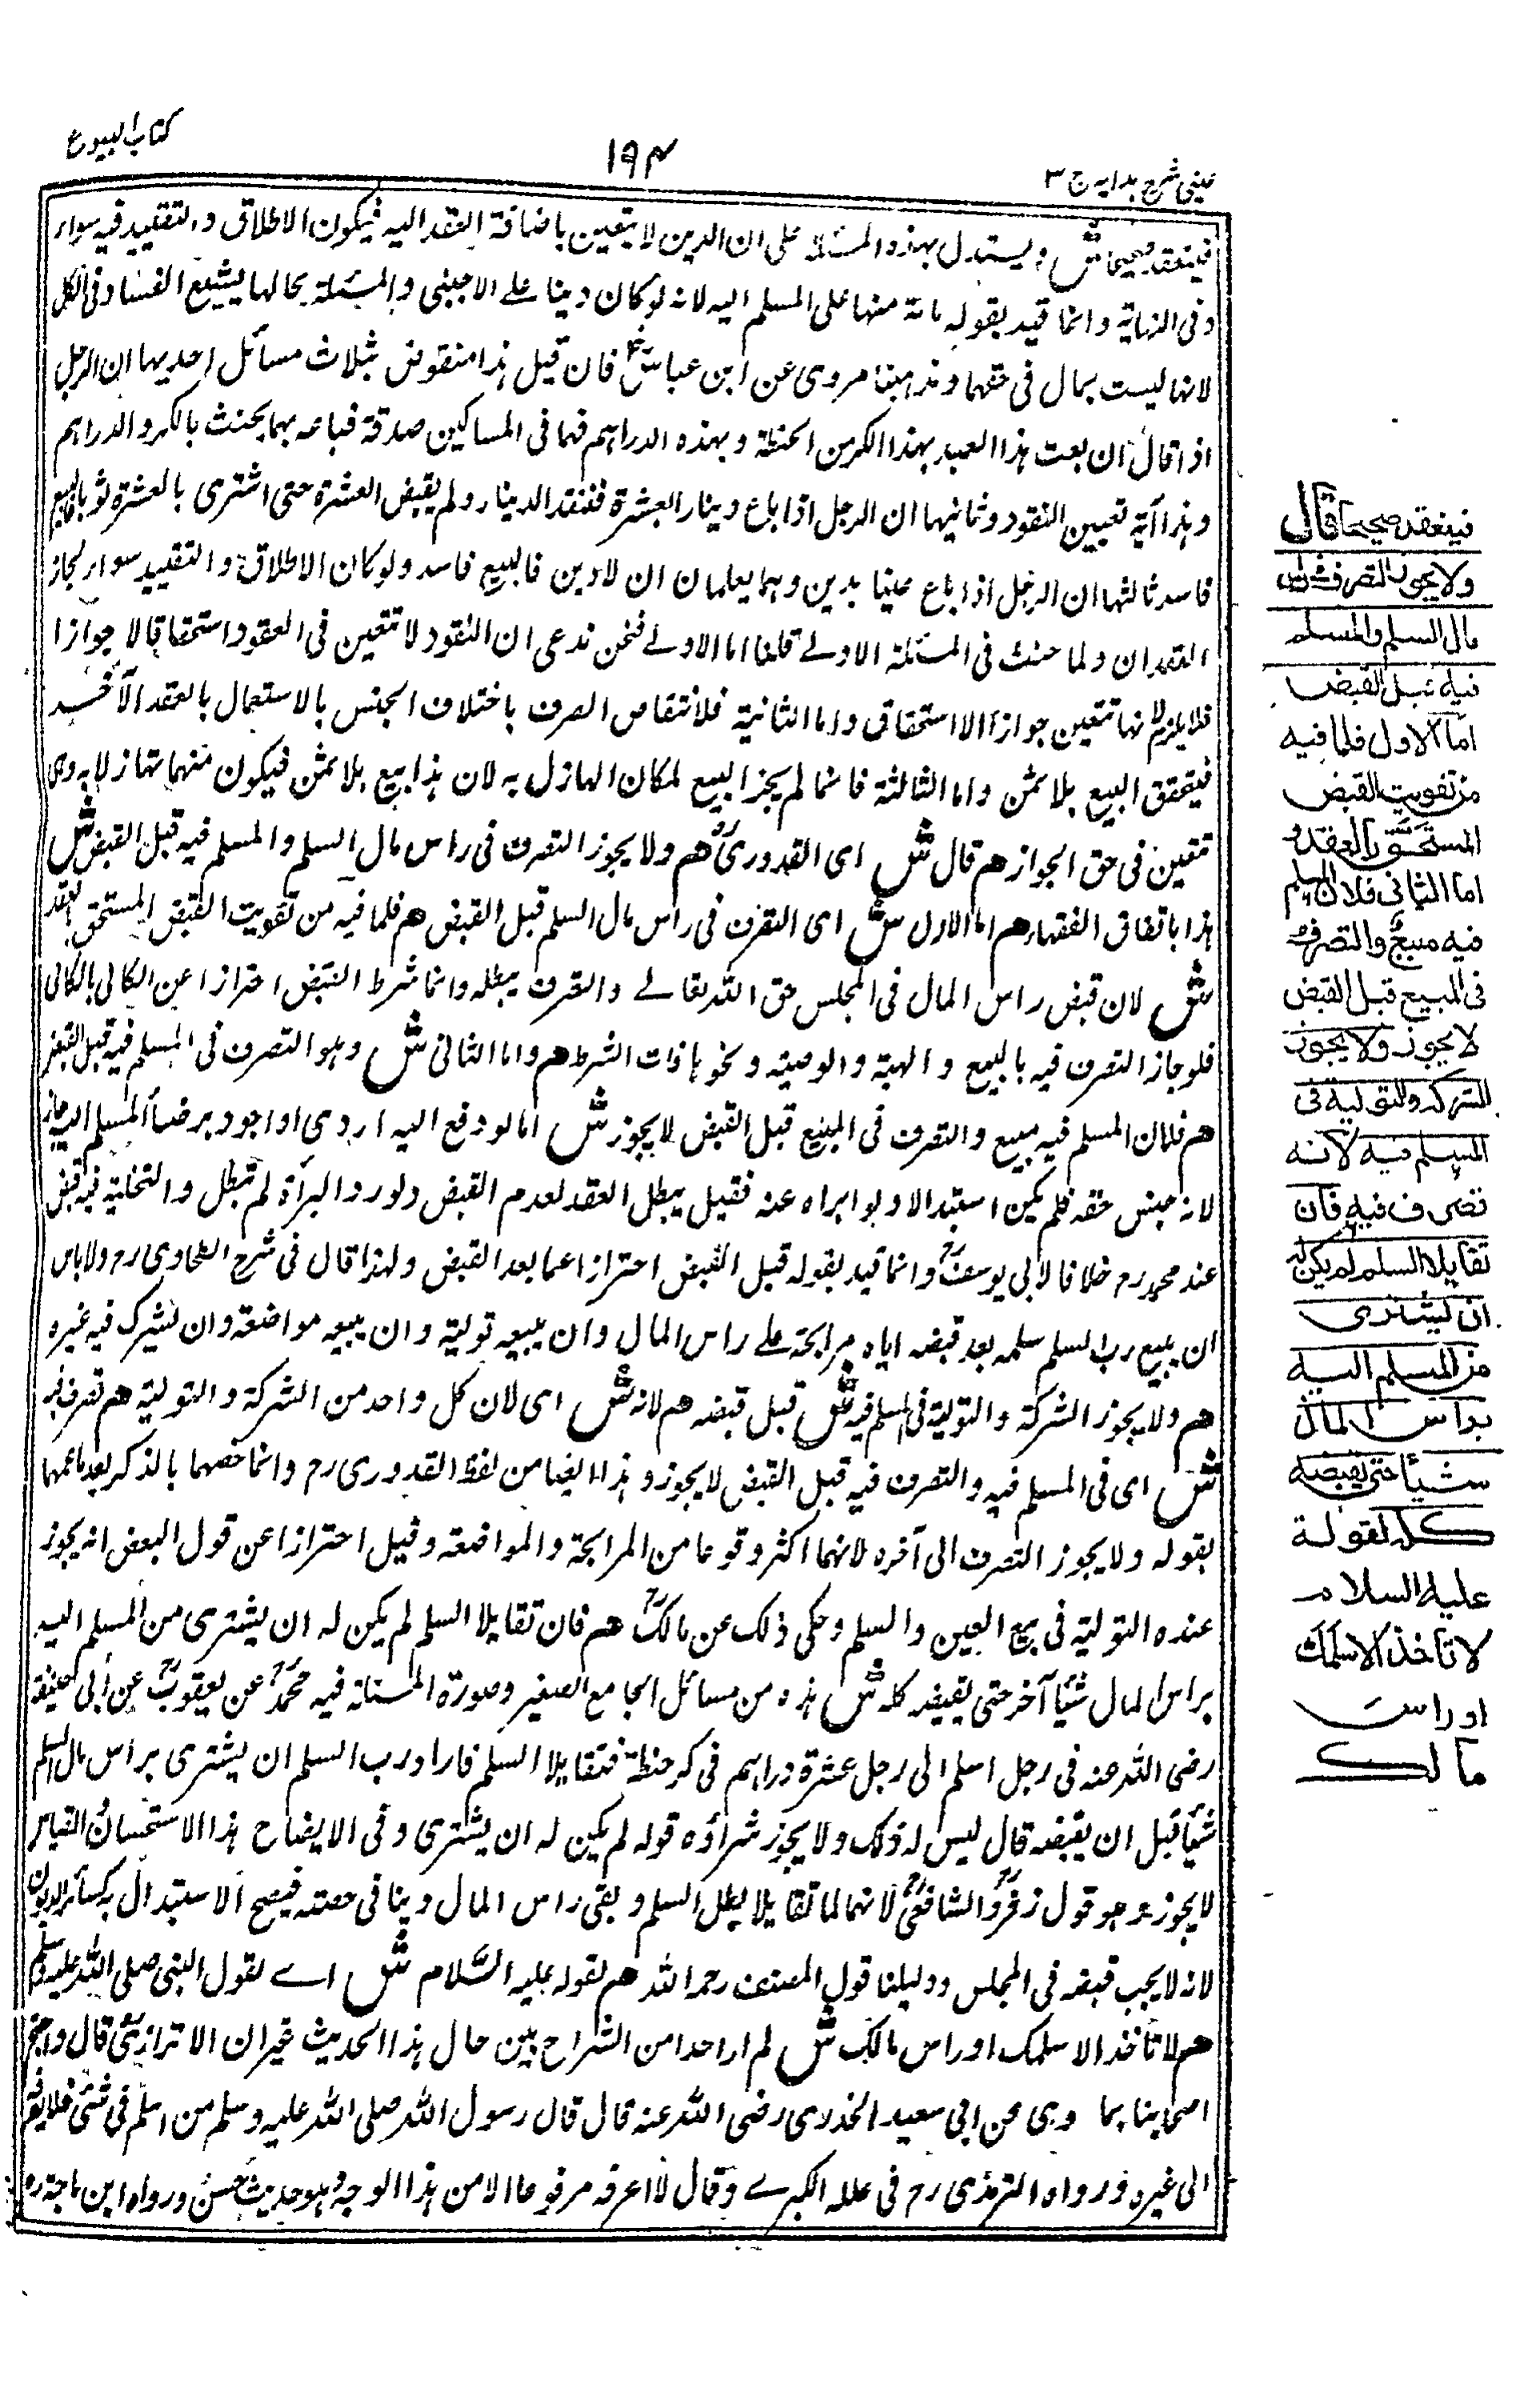 عينى شرح هدايه ج ٣
١٩٣
كتاب البيوع
فينعقد صحيحا ش ويستدل بهذه المسئلة على ان الدين لا يتعين باضافة العقد اليه فيكون الاطلاق والتقييد فيه سواء
وفى النهاية وانما قيد بقوله مائة منها على المسلم اليه لانه لو كان دينا على الاجنبى والمسئلة بحالها يشيع الفساد فى الكل
لانها ليست بمال فى حقهما ومذهبنا مروى عن ابن عباس رض فان قيل هذا منقوض بثلاث مسائل احديها ان الرجل
اذا قال ان بعت هذا العبد بهذا الكر من الحنطة وبهذه الدراهم فهما فى المساكين صدقة فباعه بهما يحنث بالكر والدراهم
وهذا آية تعيين النقود وثانيها ان الرجل اذا باع دينارا بعشرة فنقد الدينار ولم يقبض العشرة حتى اشترى بالعشرة ثوبا فالبيع
فاسد ثالثها ان الرجل اذا باع عينا بدين وهما يعلمان ان لا دين فالبيع فاسد ولو كان الاطلاق والتقييد سواء لجاز
العقدان ولما حنث فى المسئلة الاولے قلنا اما الاولے فنحن ندعى ان النقود لا تتعين فى العقود استحقاقا لا جوازا
فلا يلزم لانها تتعين جوازا لا استحقاق واما الثانية فلانتقاض الصرف باختلاف الجنس بالاستعمال بالعقد الآخر
فيتحقق البيع بلا ثمن واما الثالثة فانما لم يجز البيع لمكان الهازل به لان هذا بيع بلا ثمن فيكون منهما تهازلا به وهى
تتعين فى حق الجواز هم قال ش اى القدورى رح هم ولا يجوز التصرف فى راس مال السلم والمسلم فيه قبل القبض ش
هذا باتفاق الفقهاء هم اما الاول ش اى التصرف فى راس مال السلم قبل القبض هم فلما فيه من تفويت القبض المستحق بالعقد
ش لان قبض راس المال فى المجلس حق الله تعالے والتصرف يبطله وانما شرط القبض احترازا عن الكالى بالكالى
فلو جاز التصرف فيه بالبيع والهبة والوصية ونحوها فات الشرط هم واما الثانى ش وهو التصرف فى المسلم فيه قبل القبض
هم فلان المسلم فيه مبيع والتصرف فى المبيع قبل القبض لا يجوز ش اما لو دفع اليه اردى او اجود برضا المسلم اليه جاز
لانه جنس حقه فلم يكن استبدالا ولو ابراه عنه فقيل يبطل العقد لعدم القبض ولو رد البرأة لم تبطل والتخلية فيه قبض
عند محمد رح خلافا لابى يوسف رح وانما قيد بقوله قبل القبض احترازا عما بعد القبض ولهذا قال فى شرح الطحاوى رح ولا باس
ان يبيع رب السلم سلمه بعد قبضه اياه مرابحة على راس المال وان يبيعه تولية وان يبيعه مواضعة وان يشرك فيه غيره
هم ولا يجوز الشركة والتولية فى المسلم فيه ش قبل قبضه هم لانه ش اى لان كل واحد من الشركة والتولية هم تصرف فيه
ش اى فى المسلم فيه والتصرف فيه قبل القبض لا يجوز وهذا ايضا من لفظ القدورى رح وانما خصهما بالذكر بعد ما عمهما
بقوله ولا يجوز التصرف الى آخره لانهما اكثر وقوعا من المرابحة والمواضعة وقيل احترازا عن قول البعض انه يجوز
عنده التولية فى بيع العين والسلم وحكى ذلك عن مالك رح هم فان تقايلا السلم لم يكن له ان يشترى من المسلم اليه
براس المال شيأ آخر حتى يقبضه كله ش هذه من مسائل الجامع الصغير وصورة المسئلة فيه محمد رح عن يعقوب رح عن ابى حنيفة
رضى الله عنه فى رجل اسلم الى رجل عشرة دراهم فى كر حنطة فتقايلا السلم فاراد رب السلم ان يشترى براس مال السلم
شيأ قبل ان يقبضه قال ليس له ذلك ولا يجوز شراؤه قوله لم يكن له ان يشترى وفى الايضاح هذا الاستحسان والقياس
لا يجوز وهو قول زفر رح والشافعى رح لانهما لما تقايلا بطل السلم وبقى راس المال دينا فى حصته فيصح الاستبدال به كسائر الديون
لانه لا يجب قبضه فى المجلس ودليلنا قول المصنف رحمه الله هم لقوله عليه السلام ش اے لقول النبى صلى الله عليه وسلم
هم لا تأخذ الا سلمك او راس مالك ش لم ار احدا من الشراح بين حال هذا الحديث غير ان الاترازى رح قال واحتج
اصحابنا بما روى عن ابى سعيد الخدرى رضى الله عنه قال قال رسول الله صلى الله عليه وسلم من اسلم فى شئ فلا يصرفه
الى غيره ورواه الترمذى رح فى علله الكبرے وقال لا اعرفه مرفوعا الا من هذا الوجه وهو حديث حسن ورواه ابن ماجة رح
فينعقد صحيحا قال
ولا يجوز التصرف فى راس
مال السلم والمسلم
فيه قبل القبض
اما الاول فلما فيه
من تفويت القبض
المستحق بالعقد و
اما الثانى فلان المسلم
فيه مبيع والتصرف
فى المبيع قبل القبض
لا يجوز ولا يجوز
الشركة والتولية فى
المسلم فيه لانه
تصرف فيه فان
تقايلا السلم لم يكن له
ان يشترى
من المسلم اليه
براس المال
شيأ حتى يقبضه
كله لقوله
عليه السلام
لا تأخذ الا سلمك
او راس
مالك